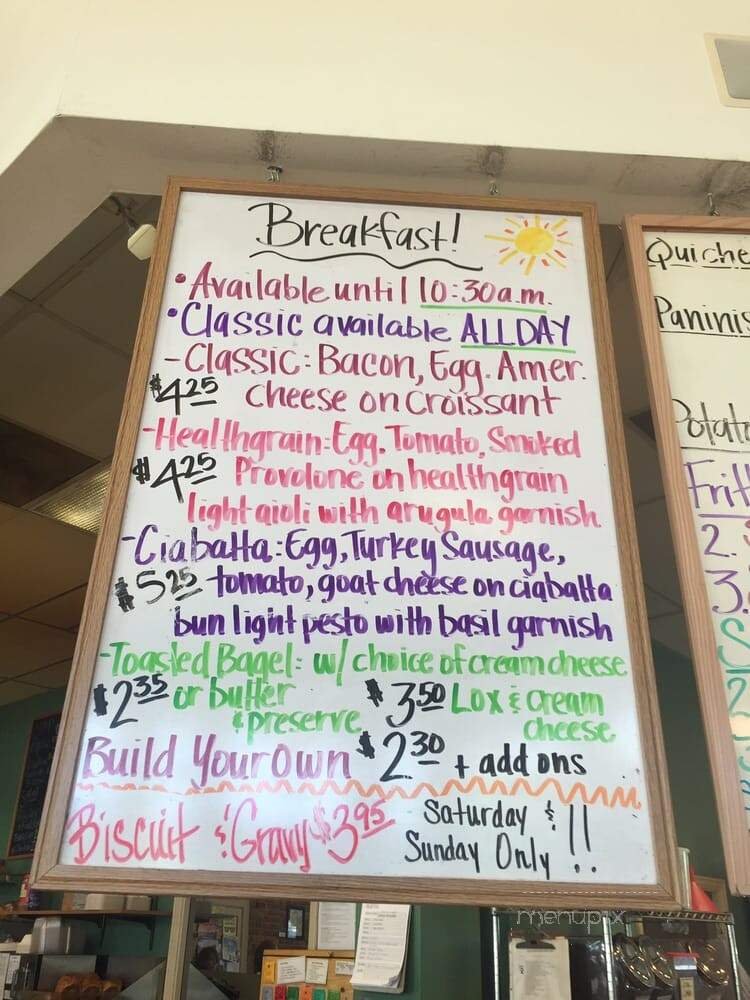 Breakfast!
• Available until 10:30a.m.
• Classic available ALLDAY
- Classic: Bacon, Egg. Amer.
$4.25 cheese on croissant
- Healthgrain: Egg. Tomato, Smoked
$4.25 Provolone on healthgrain
light aioli with arugula garnish
- Ciabatta: Egg, Turkey Sausage,
$5.25 tomato, goat cheese on ciabatta
bun light pesto with basil garnish
- Toasted Bagel: w/ choice of cream cheese
$2.35 or butter $3.50 Lox & cream
& preserve cheese
Build Your Own $2.30 + add ons
Biscuit & Gravy $3.95 Saturday &
Sunday Only !!
Quiche
Paninis
2.
3.
2
menupix